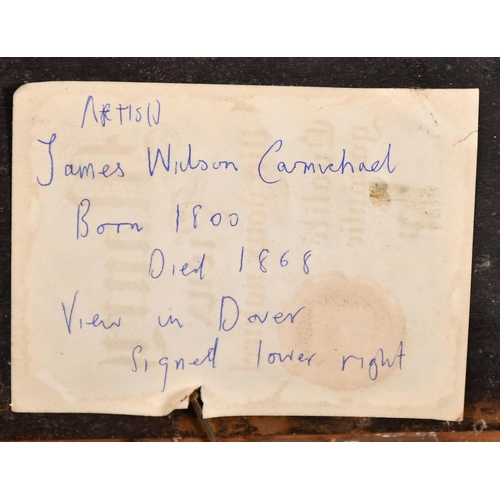 ARTIST
James Wilson Carmichael
Born 1800
Died 1868
View in Dover
signed lower right